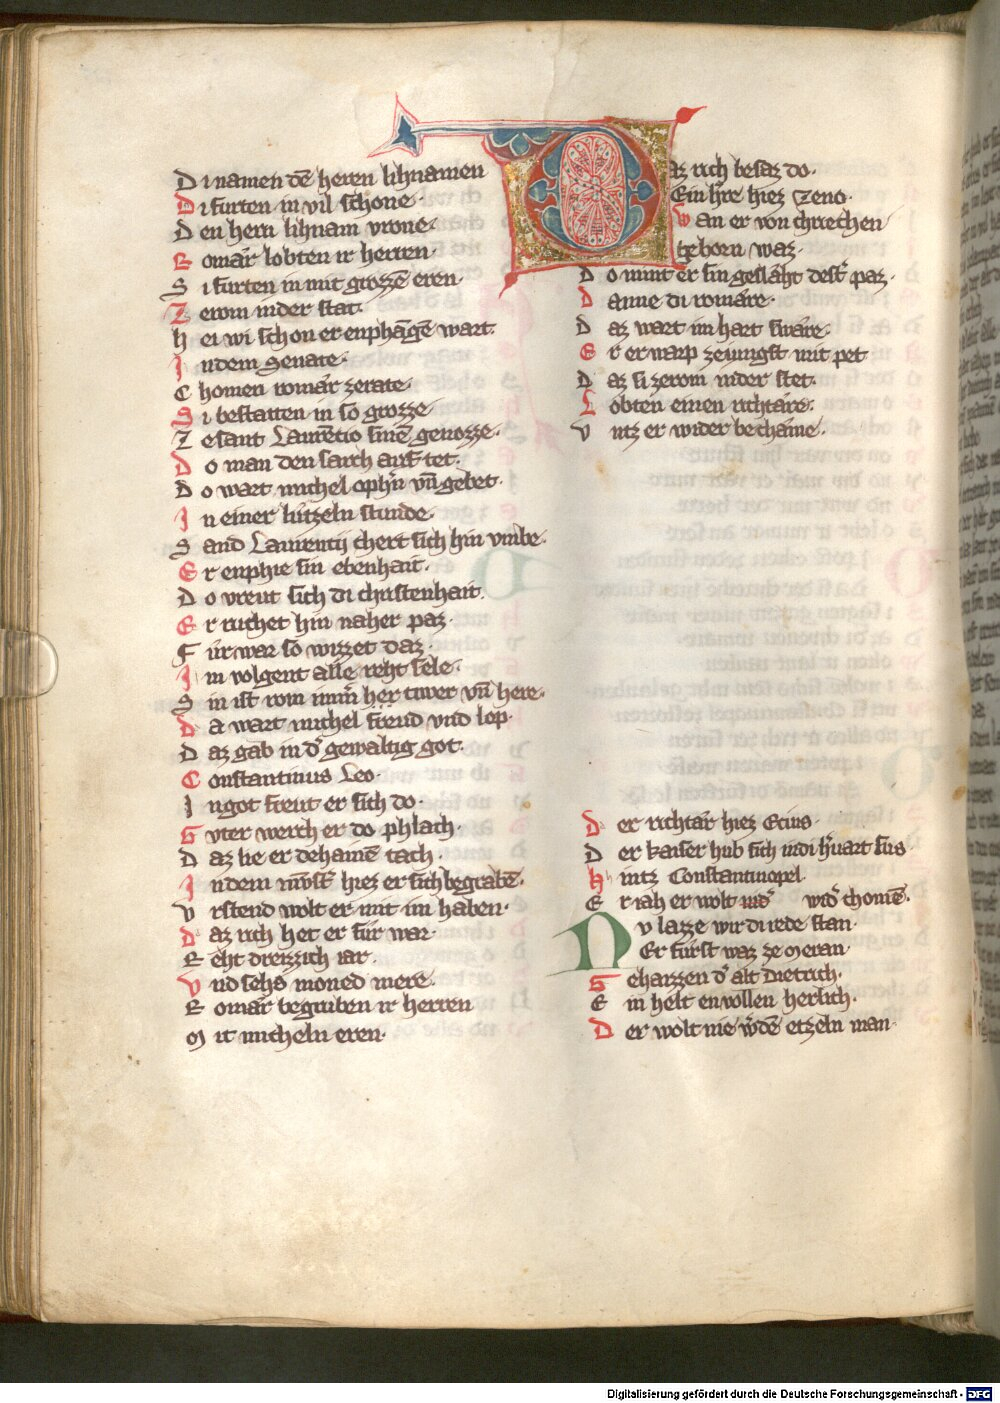 Di namen dē herren lihnamen
Di furten in vil schone·
Den hern lihnam vrone·
Romár lobten ir herren·
Si furten in mit grozzē eren·
Zerom inder stat·
hei wi schon er enphangē wart·
Indem Senate·
Chomen romár zerate·
Si bestatten in so grozze·
Zesant Laurētio sinē genozze·
Do man den sarch auf tet·
Do wart michel ophˀn vn̄ gebet·
In einer lutzeln stunde·
Sand Laurentij chert sich hin vmbe·
Er enphie sin ebenhait·
Do vreut sich di christenhait·
Er ruchet hin naher paz·
Fur war so wizzet daz·
Im volgent alle reht sele·
Sin ist rom immˀ her tiwer vn̄ here·
Da wart michel freud vnd lop·
Daz gab in dˀ gewaltig got·
Constantinus Leo·
Ingot freut er sich do·
Guter werch er do phlach·
Daz lie er dehainē tach·
Indem mvnstˀ hiez er sich begrabē·
Vrstend wolt er mit im haben·
Daz rich het er fur war·
Reht dreizzich iar·
Vnd sehs moned mere·
Romár begruben ir herren
Mit micheln eren·
Daz rich besaz do·
Ein hˀre hiez Zeno·
Wan er von chriechen
geborn waz·
Do mint er sin geslaht destˀ paz·
Danne di romáre·
Daz wart im hart swáre·
Er erwarp zeiungst mit pet
Daz si zerom inder stet·
Lobten einen richtáre·
Vntz er wider becháme·
Der richtár hiez Ecius·
Der kaiser hub sich indi hˀuart sus·
Hintz Constantinopel
Er iah er wolt widˀ chomē·
Nv lazze wir di rede stan·
Er furst waz ze Meran·
Gehaizzen dˀ alt Dietrich·
Ein helt envollen herlich·
Der wolt nie wˀdē etzeln man·
Digitalisierung gefördert durch die Deutsche Forschungsgemeinschaft - DFG